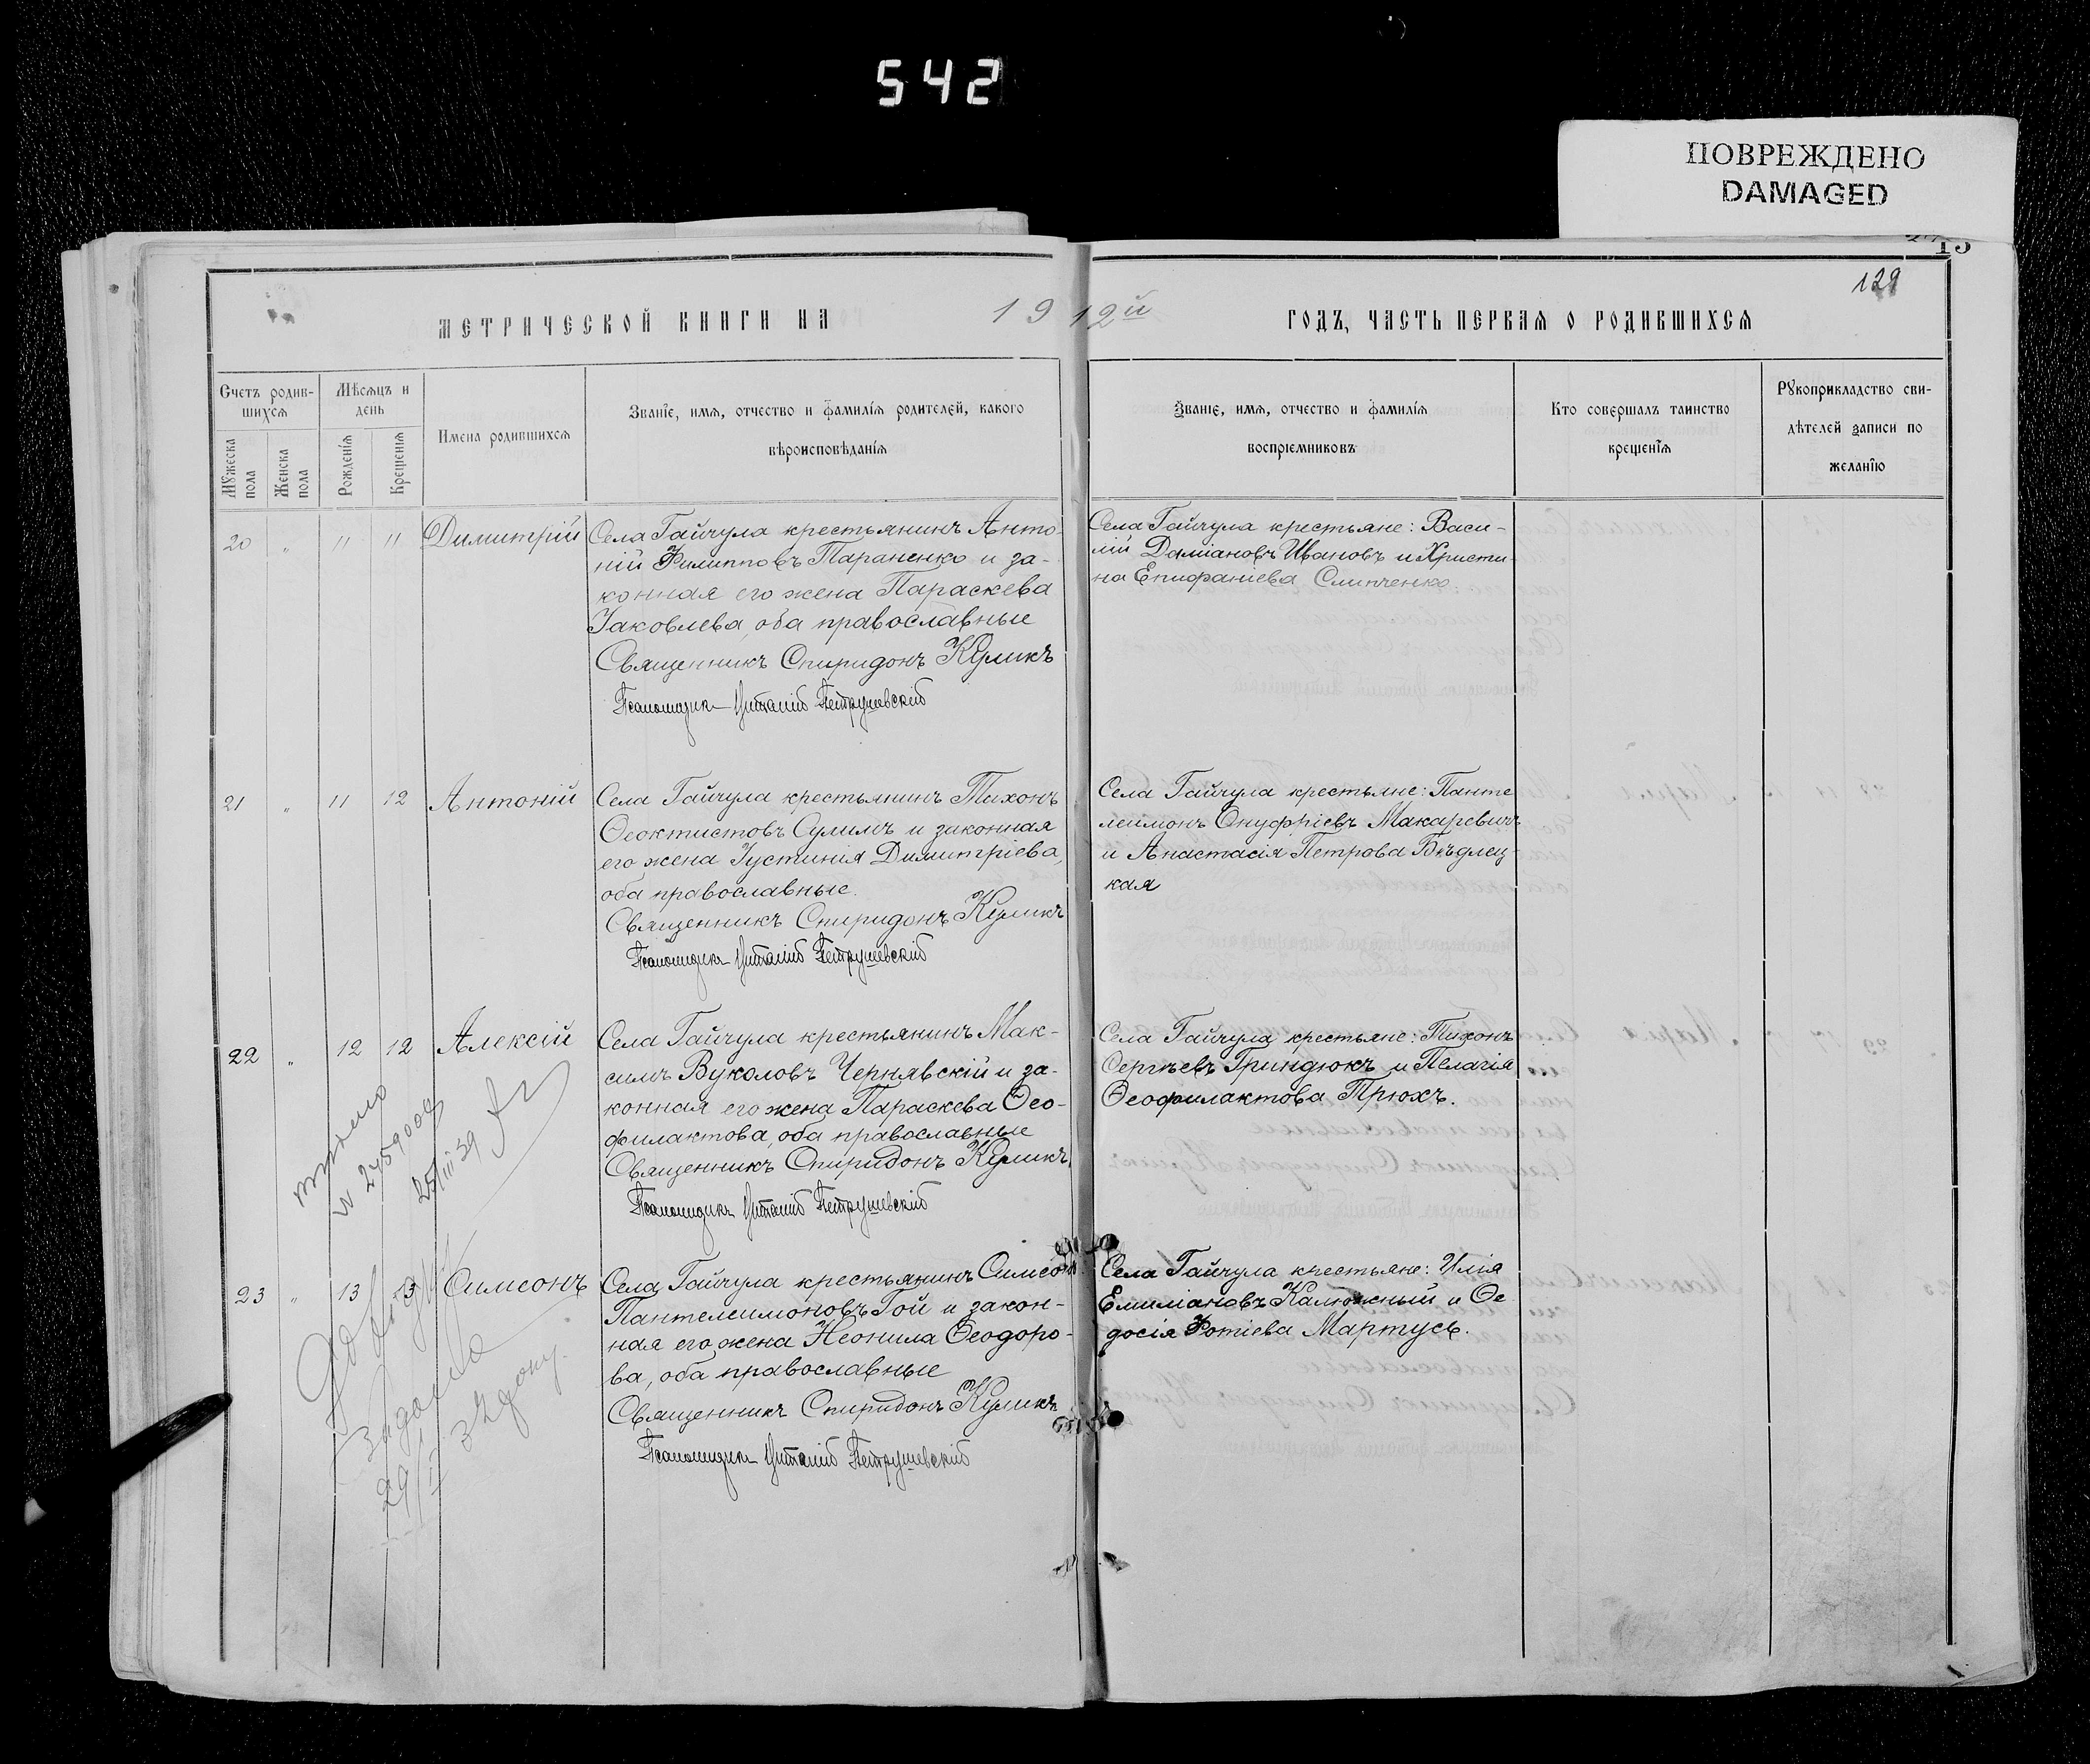 542
ПОВРЕЖДЕНО
DAMAGED
15
129
МЕТРИЧЕСКОЙ КНИГИ НА 1912й ГОДЪ, ЧАСТЬ ПЕРВАЯ О РОДИВШИХСЯ
Счетъ родив-
шихся
Мѣсяцъ и
день
Мужеска
пола
Женска
пола
Рожденія
Крещенія
Имена родившихся
Званіе, имя, отчество и фамилія родителей, какого
вѣроисповѣданія
Званіе, имя, отчество и фамилія
воспріемниковъ
Кто совершалъ таинство
крещенія
Рукоприкладство сви-
дѣтелей записи по
желанію
20 " 11 11 Димитрій
Села Гайчула крестьянинъ Анто-
ній Филипповъ Параненко и за-
конная его жена Параскева
Іаковлева, оба православные
Священникъ Спиридонъ Куликъ
Псаломщикъ Виталій Петрушевскій
Села Гайчула крестьяне: Васи-
лій Даміановъ Ивановъ и Христи-
на Епифаніева Слипченко.
21 " 11 12 Антоній
Села Гайчула крестьянинъ Тихонъ
Ѳеоктистовъ Сулимъ и законная
его жена Іустинія Димитріева,
оба православные.
Священникъ Спиридонъ Куликъ
Псаломщикъ Виталій Петрушевскій
Села Гайчула крестьяне: Панте
леимонъ Онуфріевъ Макаревичъ
и Анастасія Петрова Бѣдлец-
кая
22 " 12 12 Алексій
Села Гайчула крестьянинъ Мак-
симъ Вуколовъ Чернявскій и за-
конная его жена Параскева Ѳео-
филактова, оба православные
Священникъ Спиридонъ Куликъ
Псаломщикъ Виталій Петрушевскій
Села Гайчула крестьяне: Тихонъ
Сергѣевъ Гриндюкъ и Пелагія
Ѳеофилактова Трюхъ.
25/III 39
23 " 13 13 Симеонъ
Села Гайчула крестьянинъ Симеонъ
Пантелеимоновъ Гой и закон-
ная его жена Неонила Ѳеодоро-
ва, оба православные
Священникъ Спиридонъ Куликъ
Псаломщикъ Виталій Петрушевскій
Села Гайчула крестьяне: Илія
Емиліановъ Калюжный и Ѳе
досія Фотіева Мартусь.
29/II 32 року.